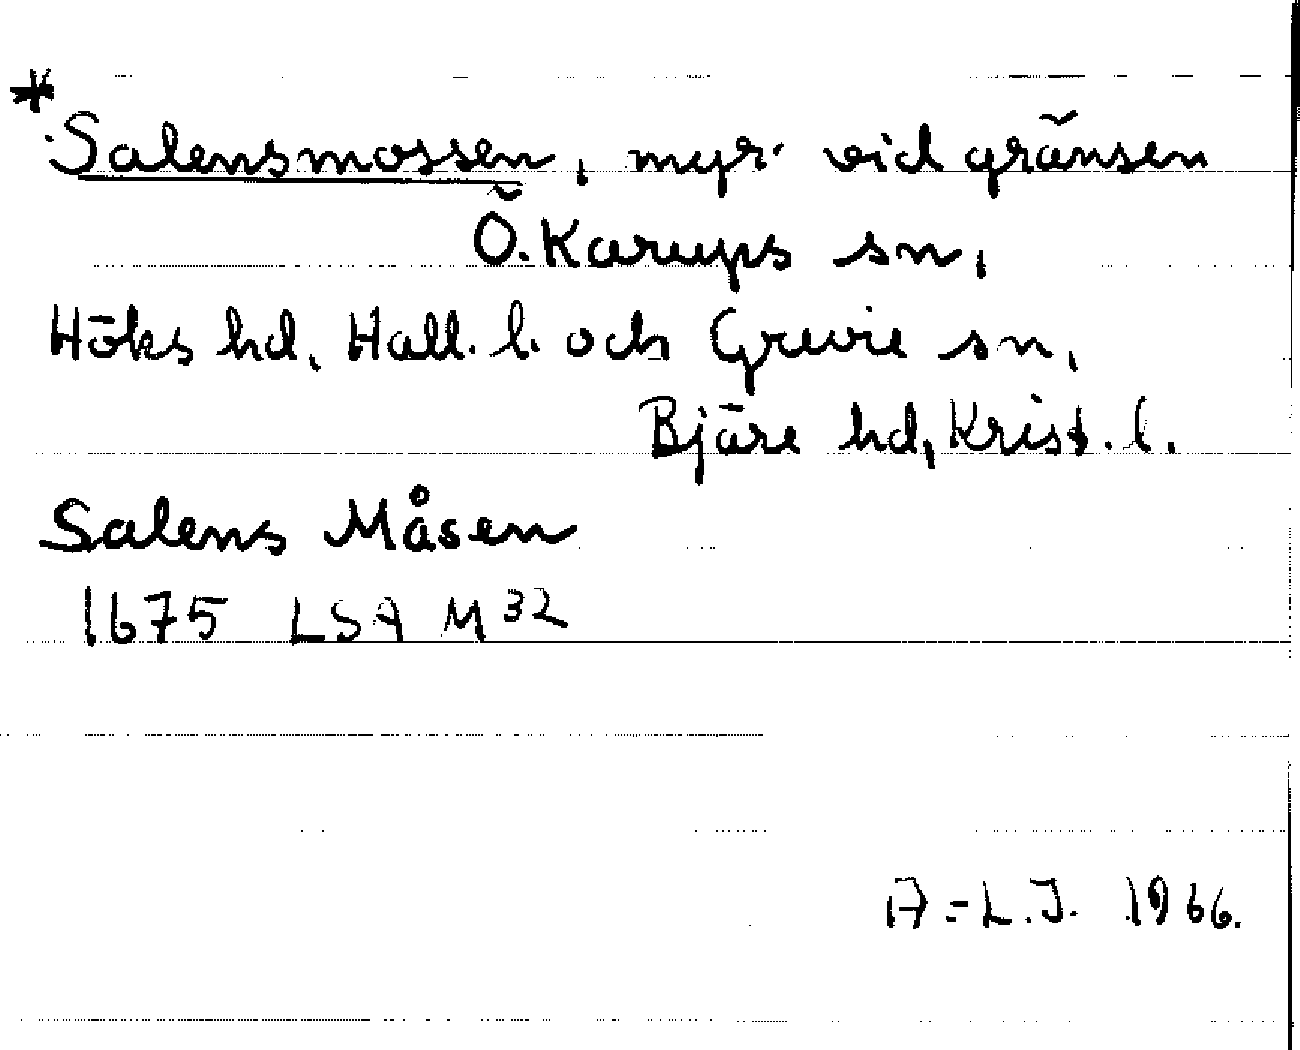 *Salensmossen, myr vid gränsen
Ö. Karups sn,
Höks hd, Hall. l. och Grevie sn,
Bjäre hd, Krist. l.
Salens Måsen
1675 LSA M 32
A-L.J. 1966.